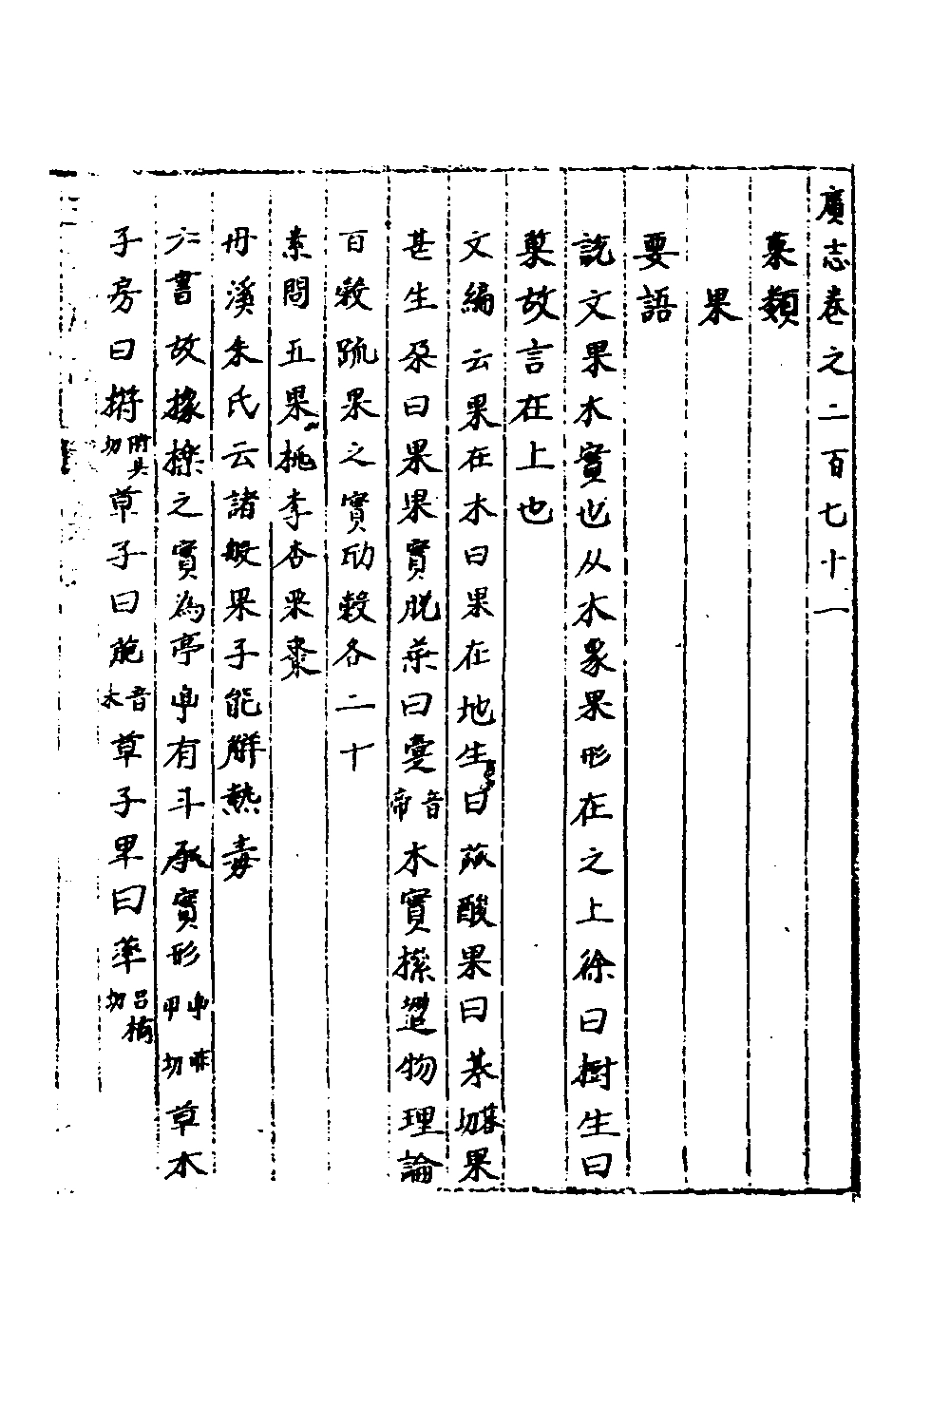 廣志卷之二百七十一
菓類
果
要語
說文果木實也从木象果形在之上徐曰樹生曰
菓故言在上也
文編云果在木曰果在地生曰蓏酸果曰棊切果
甚生朶曰果果實脫葉曰疐音帝木實攃物理論
百穀蔬果之實助穀各二十
素問五果桃李杏栗棗
丹溪朱氏云諸般果子能解熱毒
六書故橡櫟之實為亭有斗承實形切草木
子房曰柎附夫切草子曰苞音木草子早曰切